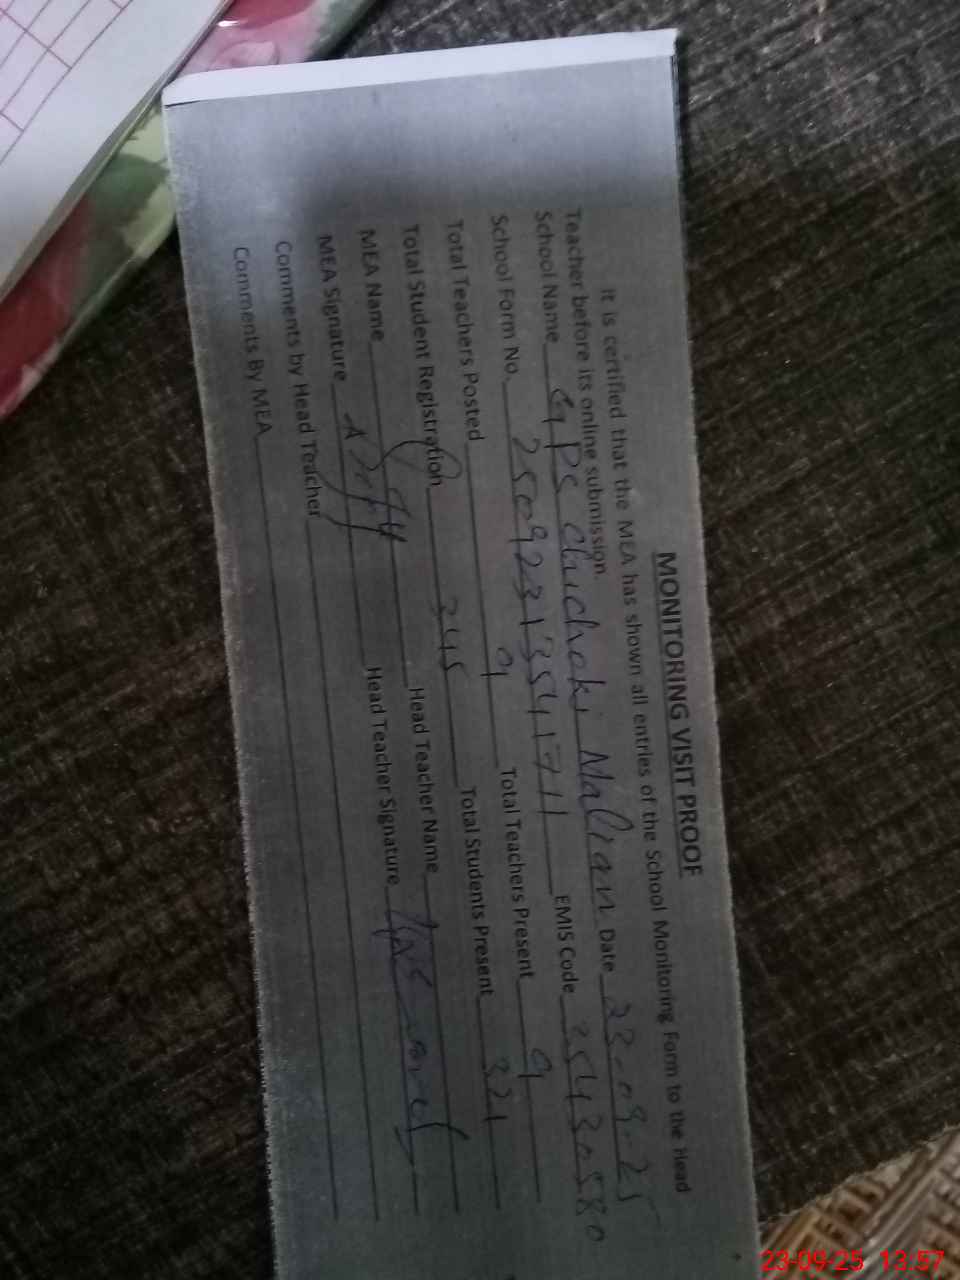 MONITORING VISIT PROOF
It is certified that the MEA has shown all entries of the School Monitoring Form to the Head
Teacher before its online submission.
School Name GPS chichoki Malian Date 23-09-25
School Form No. 25092313541711 EMIS Code 35430580
Total Teachers Posted 9 Total Teachers Present 9
Total Student Registration 345 Total Students Present 321
MEA Name Head Teacher Name
MEA Signature Head Teacher Signature
Comments by Head Teacher
Comments By MEA
23-09-25 13:57